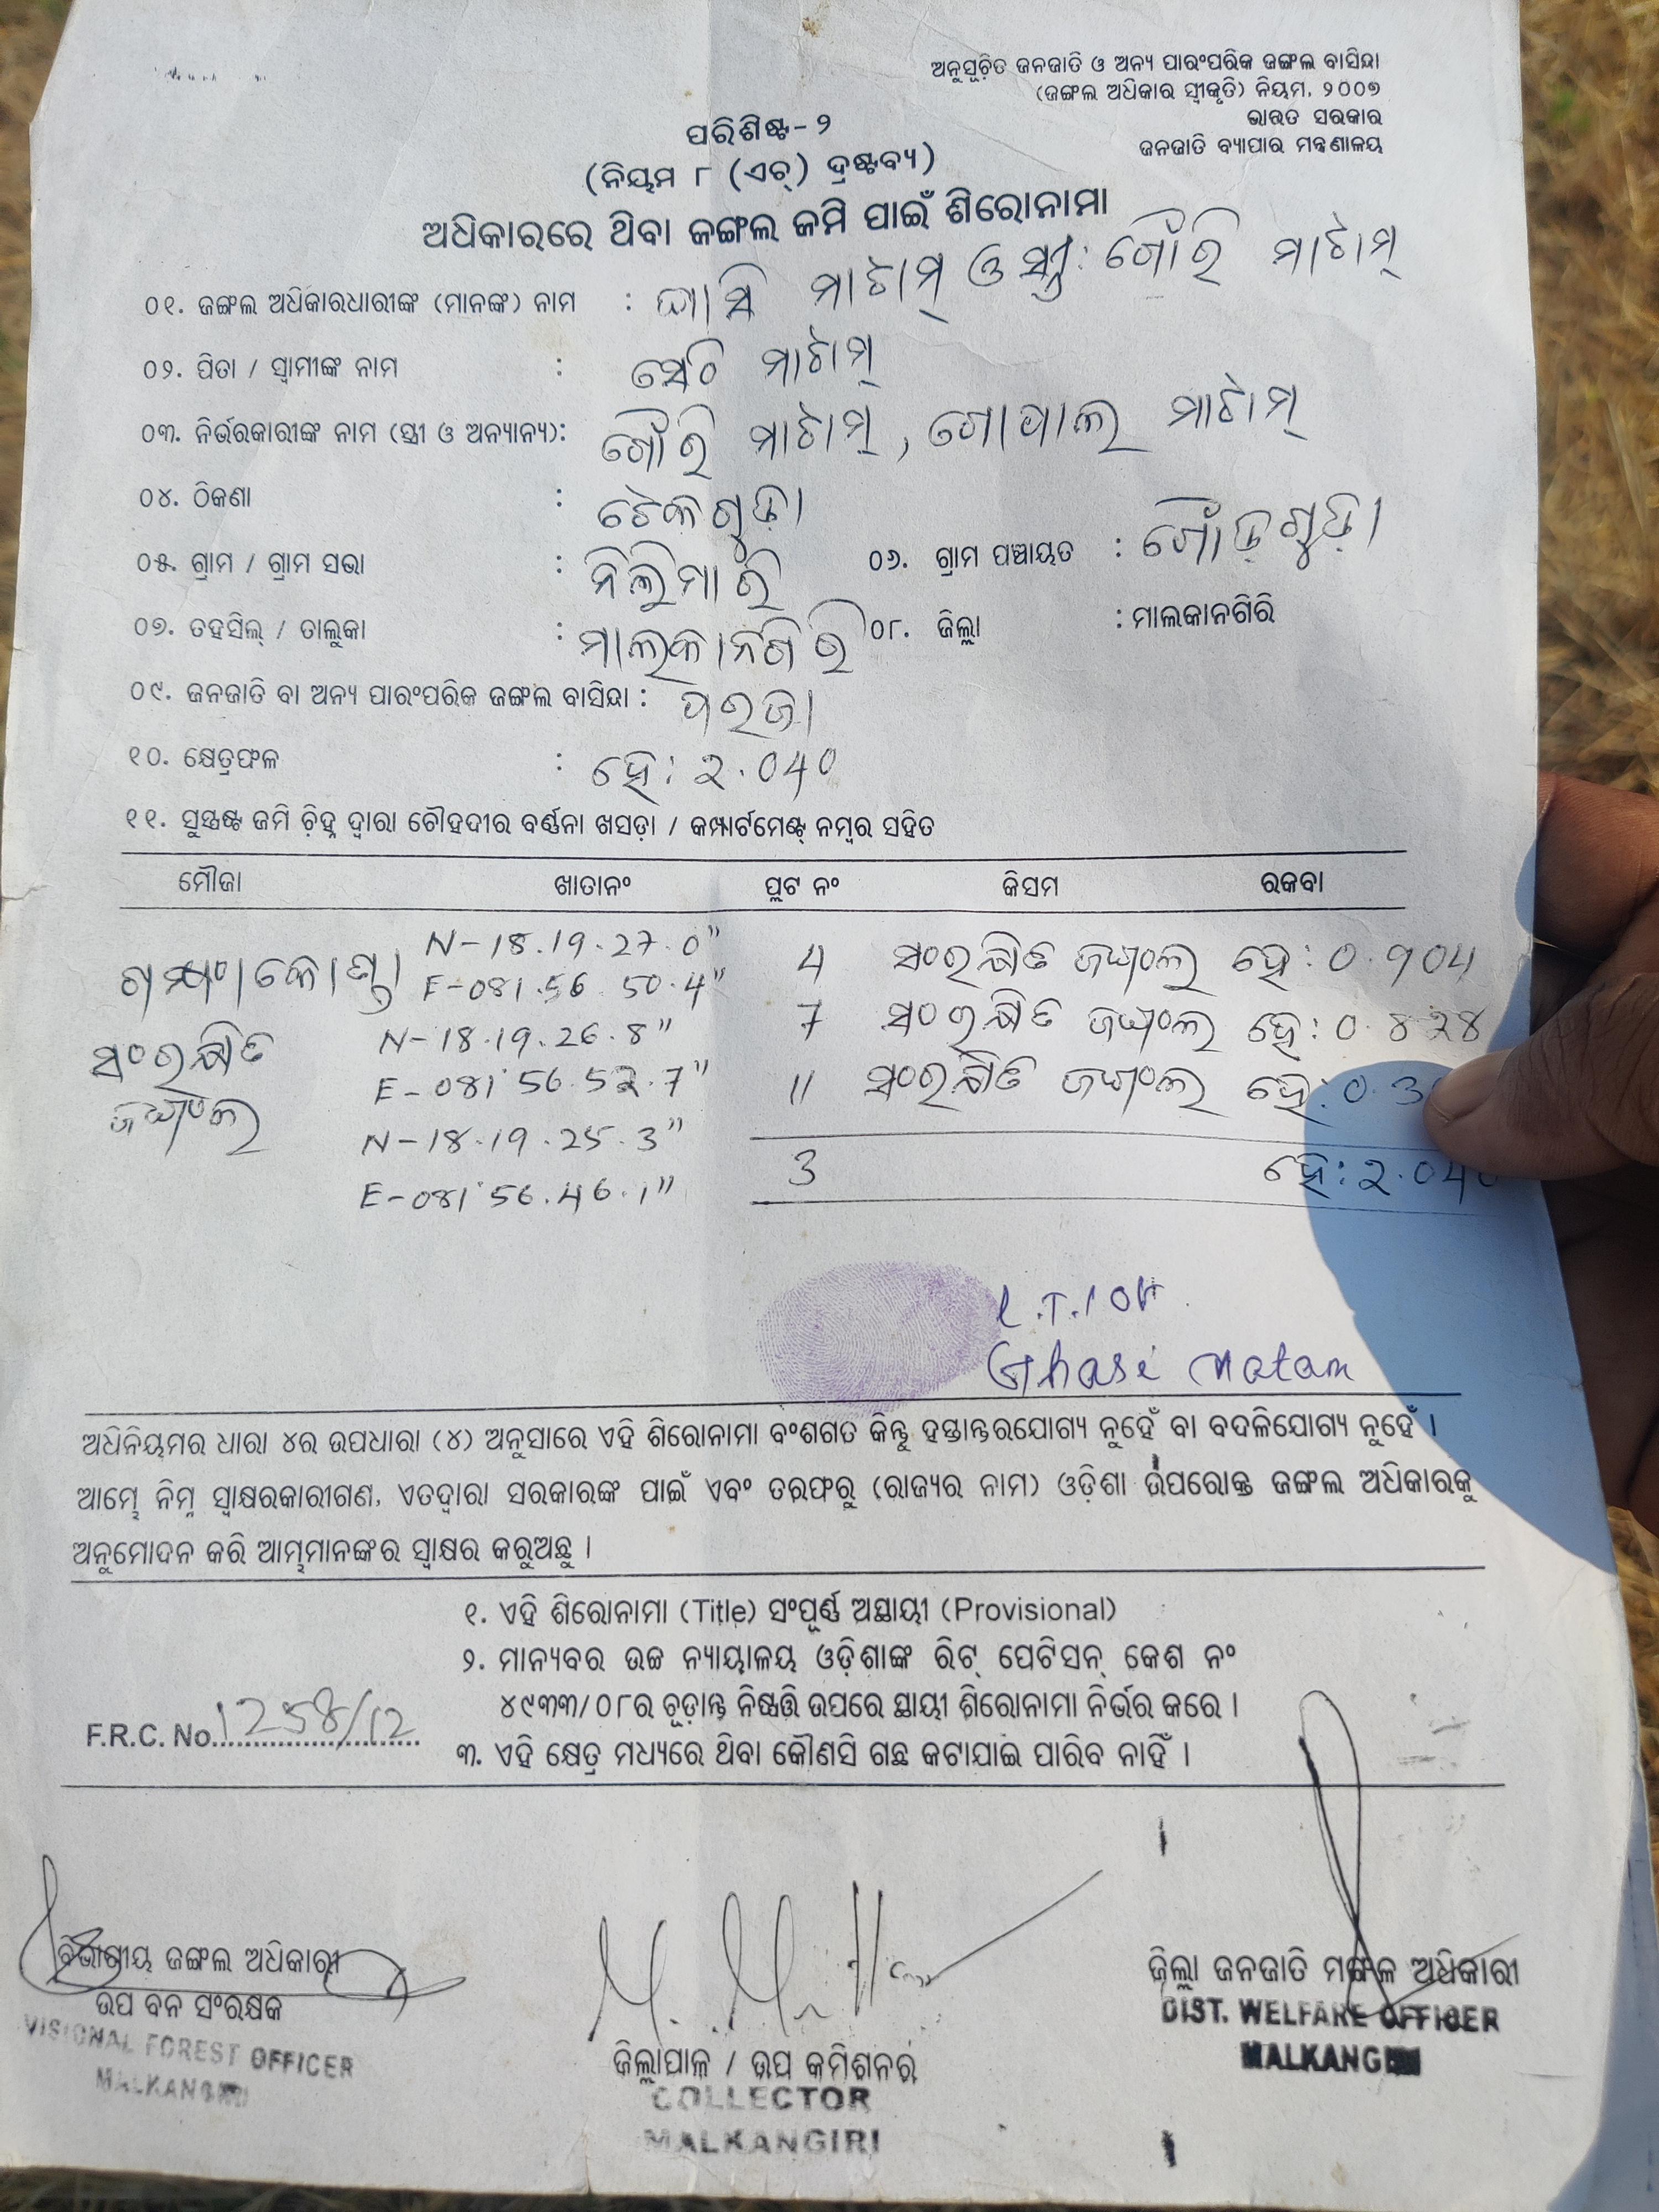 ଅନୁସୂଚିତ ଜନଜାତି ଓ ଅନ୍ୟ ପାରଂପରିକ ଜଙ୍ଗଲ ବାସିନ୍ଦା
(ଜଙ୍ଗଲ ଅଧିକାର ସ୍ୱୀକୃତି) ନିୟମ, ୨୦୦୭
ଭାରତ ସରକାର
ଜନଜାତି ବ୍ୟାପାର ମନ୍ତ୍ରଣାଳୟ
ପରିଶିଷ୍ଟ- ୨
(ନିୟମ ୮ (ଏଚ୍) ଦ୍ରଷ୍ଟବ୍ୟ)
ଅଧିକାରରେ ଥିବା ଜଙ୍ଗଲ ଜମି ପାଇଁ ଶିରୋନାମା
୦୧. ଜଙ୍ଗଲ ଅଧିକାରଧାରୀଙ୍କ (ମାନଙ୍କ) ନାମ : ଘାସି ମାଟାମ୍ ଓ ସ୍ତ୍ରୀ: ଗୌରି ମାଟାମ୍
୦୨. ପିତା / ସ୍ୱାମୀଙ୍କ ନାମ : ସେଠି ମାଟାମ୍
୦୩. ନିର୍ଭରକାରୀଙ୍କ ନାମ (ସ୍ତ୍ରୀ ଓ ଅନ୍ୟାନ୍ୟ): ଗୌରି ମାଟାମ୍, ଗୋପାଲ ମାଟାମ୍
୦୪. ଠିକଣା : ଟେକଗୁଡ଼ା
୦୫. ଗ୍ରାମ / ଗ୍ରାମ ସଭା : ନିଲିମାରି ୦୬. ଗ୍ରାମ ପଞ୍ଚାୟତ : ଗୌଡ଼ଗୁଡ଼ା
୦୭. ତହସିଲ୍ / ତାଲୁକା : ମାଲକାନଗିରି ୦୮. ଜିଲ୍ଲା : ମାଲକାନଗିରି
୦୯. ଜନଜାତି ବା ଅନ୍ୟ ପାରଂପରିକ ଜଙ୍ଗଲ ବାସିନ୍ଦା : ପରଜା
୧୦. କ୍ଷେତ୍ରଫଳ : ହେ: ୨.040
୧୧. ସୁସ୍ପଷ୍ଟ ଜମି ଚିହ୍ନ ଦ୍ୱାରା ଚୌହଦୀର ବର୍ଣ୍ଣନା ଖସଡ଼ା / କମ୍ପାର୍ଟମେଣ୍ଟ୍ ନମ୍ବର ସହିତ
ମୌଜା ଖାତାନଂ ପ୍ଲଟ ନଂ କିସମ ରକବା
N-18.19.27.0" 4 ସଂରକ୍ଷିତ ଜଙ୍ଗଲ ହେ: 0.904
E-081.56.50.4"
ସଂରକ୍ଷିତ N-18.19.26.8" 7 ସଂରକ୍ଷିତ ଜଙ୍ଗଲ ହେ: 0.828
ଜଙ୍ଗଲ E-081.56.52.7" 11 ସଂରକ୍ଷିତ ଜଙ୍ଗଲ ହେ: 0.3
N-18.19.25.3"
E-081.56.46.1" 3 ହେ: ୨.040
L.T.I of
Ghasi Matam
ଅଧିନିୟମର ଧାରା ୪ର ଉପଧାରା (୪) ଅନୁସାରେ ଏହି ଶିରୋନାମା ବଂଶଗତ କିନ୍ତୁ ହସ୍ତାନ୍ତରଯୋଗ୍ୟ ନୁହେଁ ବା ବଦଳିଯୋଗ୍ୟ ନୁହେଁ ।
ଆମ୍ଭେ ନିମ୍ନ ସ୍ୱାକ୍ଷରକାରୀଗଣ, ଏତଦ୍ୱାରା ସରକାରଙ୍କ ପାଇଁ ଏବଂ ତରଫରୁ (ରାଜ୍ୟର ନାମ) ଓଡ଼ିଶା ଉପରୋକ୍ତ ଜଙ୍ଗଲ ଅଧିକାରକୁ
ଅନୁମୋଦନ କରି ଆମ୍ଭମାନଙ୍କର ସ୍ୱାକ୍ଷର କରୁଅଛୁ ।
୧. ଏହି ଶିରୋନାମା (Title) ସଂପୂର୍ଣ୍ଣ ଅସ୍ଥାୟୀ (Provisional)
୨. ମାନ୍ୟବର ଉଚ୍ଚ ନ୍ୟାୟାଳୟ ଓଡ଼ିଶାଙ୍କ ରିଟ୍ ପେଟିସନ୍ କେଶ ନଂ
୪୯୩୩/୦୮ର ଚୂଡ଼ାନ୍ତ ନିଷ୍ପତ୍ତି ଉପରେ ସ୍ଥାୟୀ ଶିରୋନାମା ନିର୍ଭର କରେ ।
F.R.C. No. 1258/12
୩. ଏହି କ୍ଷେତ୍ର ମଧ୍ୟରେ ଥିବା କୌଣସି ଗଛ କଟାଯାଇ ପାରିବ ନାହିଁ ।
ବିଭାଗୀୟ ଜଙ୍ଗଲ ଅଧିକାରୀ
ଉପ ବନ ସଂରକ୍ଷକ
VISIONAL FOREST OFFICER
MALKANGIRI
ଜିଲ୍ଲାପାଳ / ଉପ କମିଶନର
COLLECTOR
MALKANGIRI
ଜିଲ୍ଲା ଜନଜାତି ମଙ୍ଗଳ ଅଧିକାରୀ
DIST. WELFARE OFFICER
MALKANGIRI